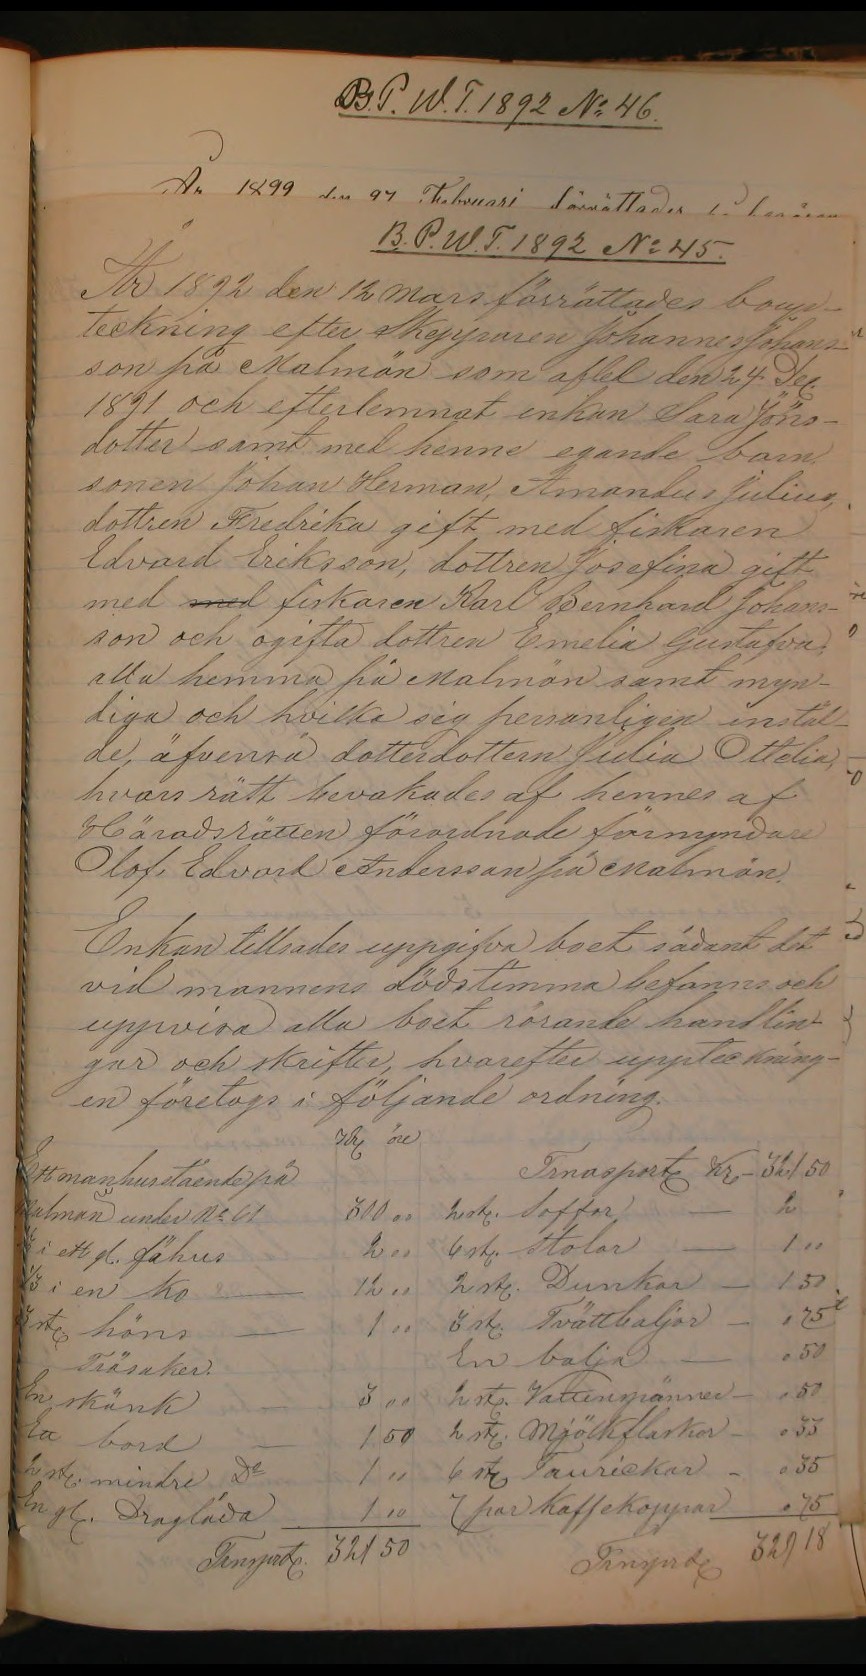 B.P.W.T. 1892 No 46.
År 1892 den 27 Februari förrättades
B.P.W.T. 1892 No 45.
År 1892 den 12 Mars förrättades boupp-
teckning efter Skepparen Johannes Johans-
son på Malmön som afled den 24 Dec.
1891 och efterlemnat enkan Sara Jöns-
dotter samt med henne egande barn
sonen Johan Herman, Amandus Julius,
dottren Fredrika gift med fiskaren
Edvard Eriksson, dottren Josefina gift
med med fiskaren Karl Bernhard Johans-
son och ogifta dottren Emelia Gustafva,
alla hemma på Malmön samt myn-
diga och hvilka sig personligen instäl-
de, äfvenså dotterdottern Julia Ottelia,
hvars rätt bevakades af hennes af
Häradsrätten förordnade förmyndare
Olof Edvard Andersson på Malmön.
Enkan tillsades uppgifva boet sådant det
vid mannens dödstimma befanns och
uppvisa alla boet rörande handlin-
gar och skrifter, hvarefter uppteckning-
en företogs i följande ordning.
Kr öre
Ett manhus stående på
Malmön under No 61 300 00
i ett gl. fähus 2 00
1/3 i en ko — 12 00
3 st. höns — 1 00
Träsaker.
En skänk — 3 00
Ett bord — 1 50
2 st. mindre Do 1 00
En gl. Draglåda 1 00
Trnsprt. 321 50
Trnasport Kr — 321 50
2 st. Soffor — 2
6 st. Stolar — 1 00
2 st. Dunkar — 1 50
3 st. Tvättbaljor — 0 75
En balja — 0 50
2 st. Vattenspänner — 0 50
2 st. Mjölkflaskor — 0 33
6 st. — 0 35
7 par Kaffekoppar 0 75
Trnsprt 329 18